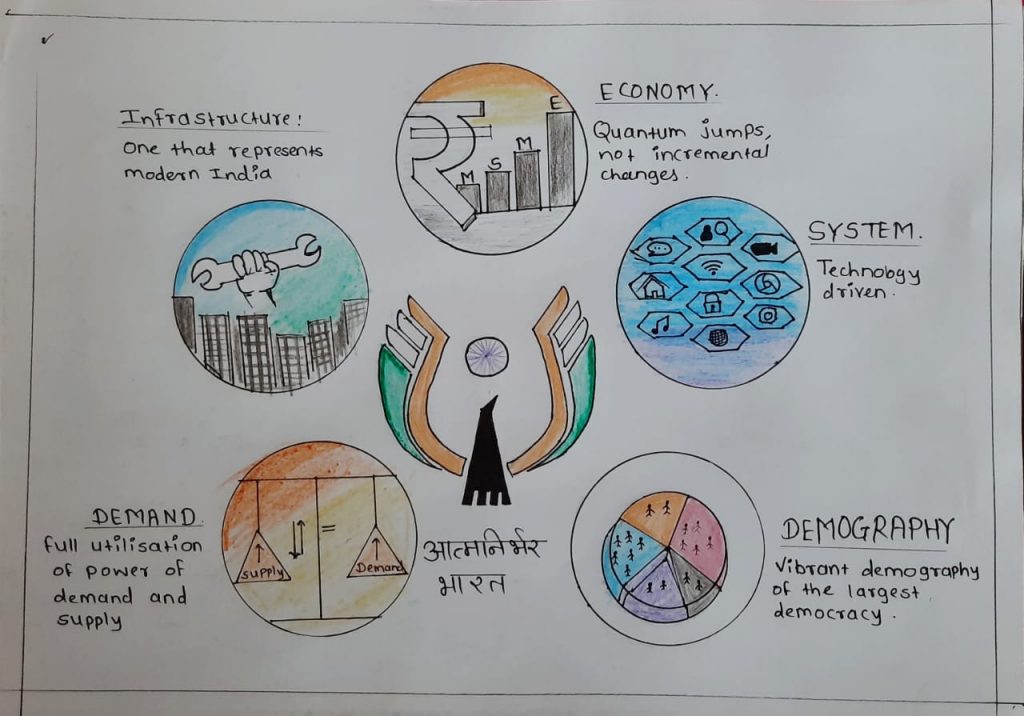 Infrastructure:
One that represents
modern India
ECONOMY.
Quantum jumps,
not incremental
changes.
₹
M S M E
SYSTEM.
Technology
driven.
DEMAND
full utilisation
of power of
demand and
supply
supply
=
Demand
आत्मनिर्भर
भारत
DEMOGRAPHY
Vibrant demography
of the largest
democracy.